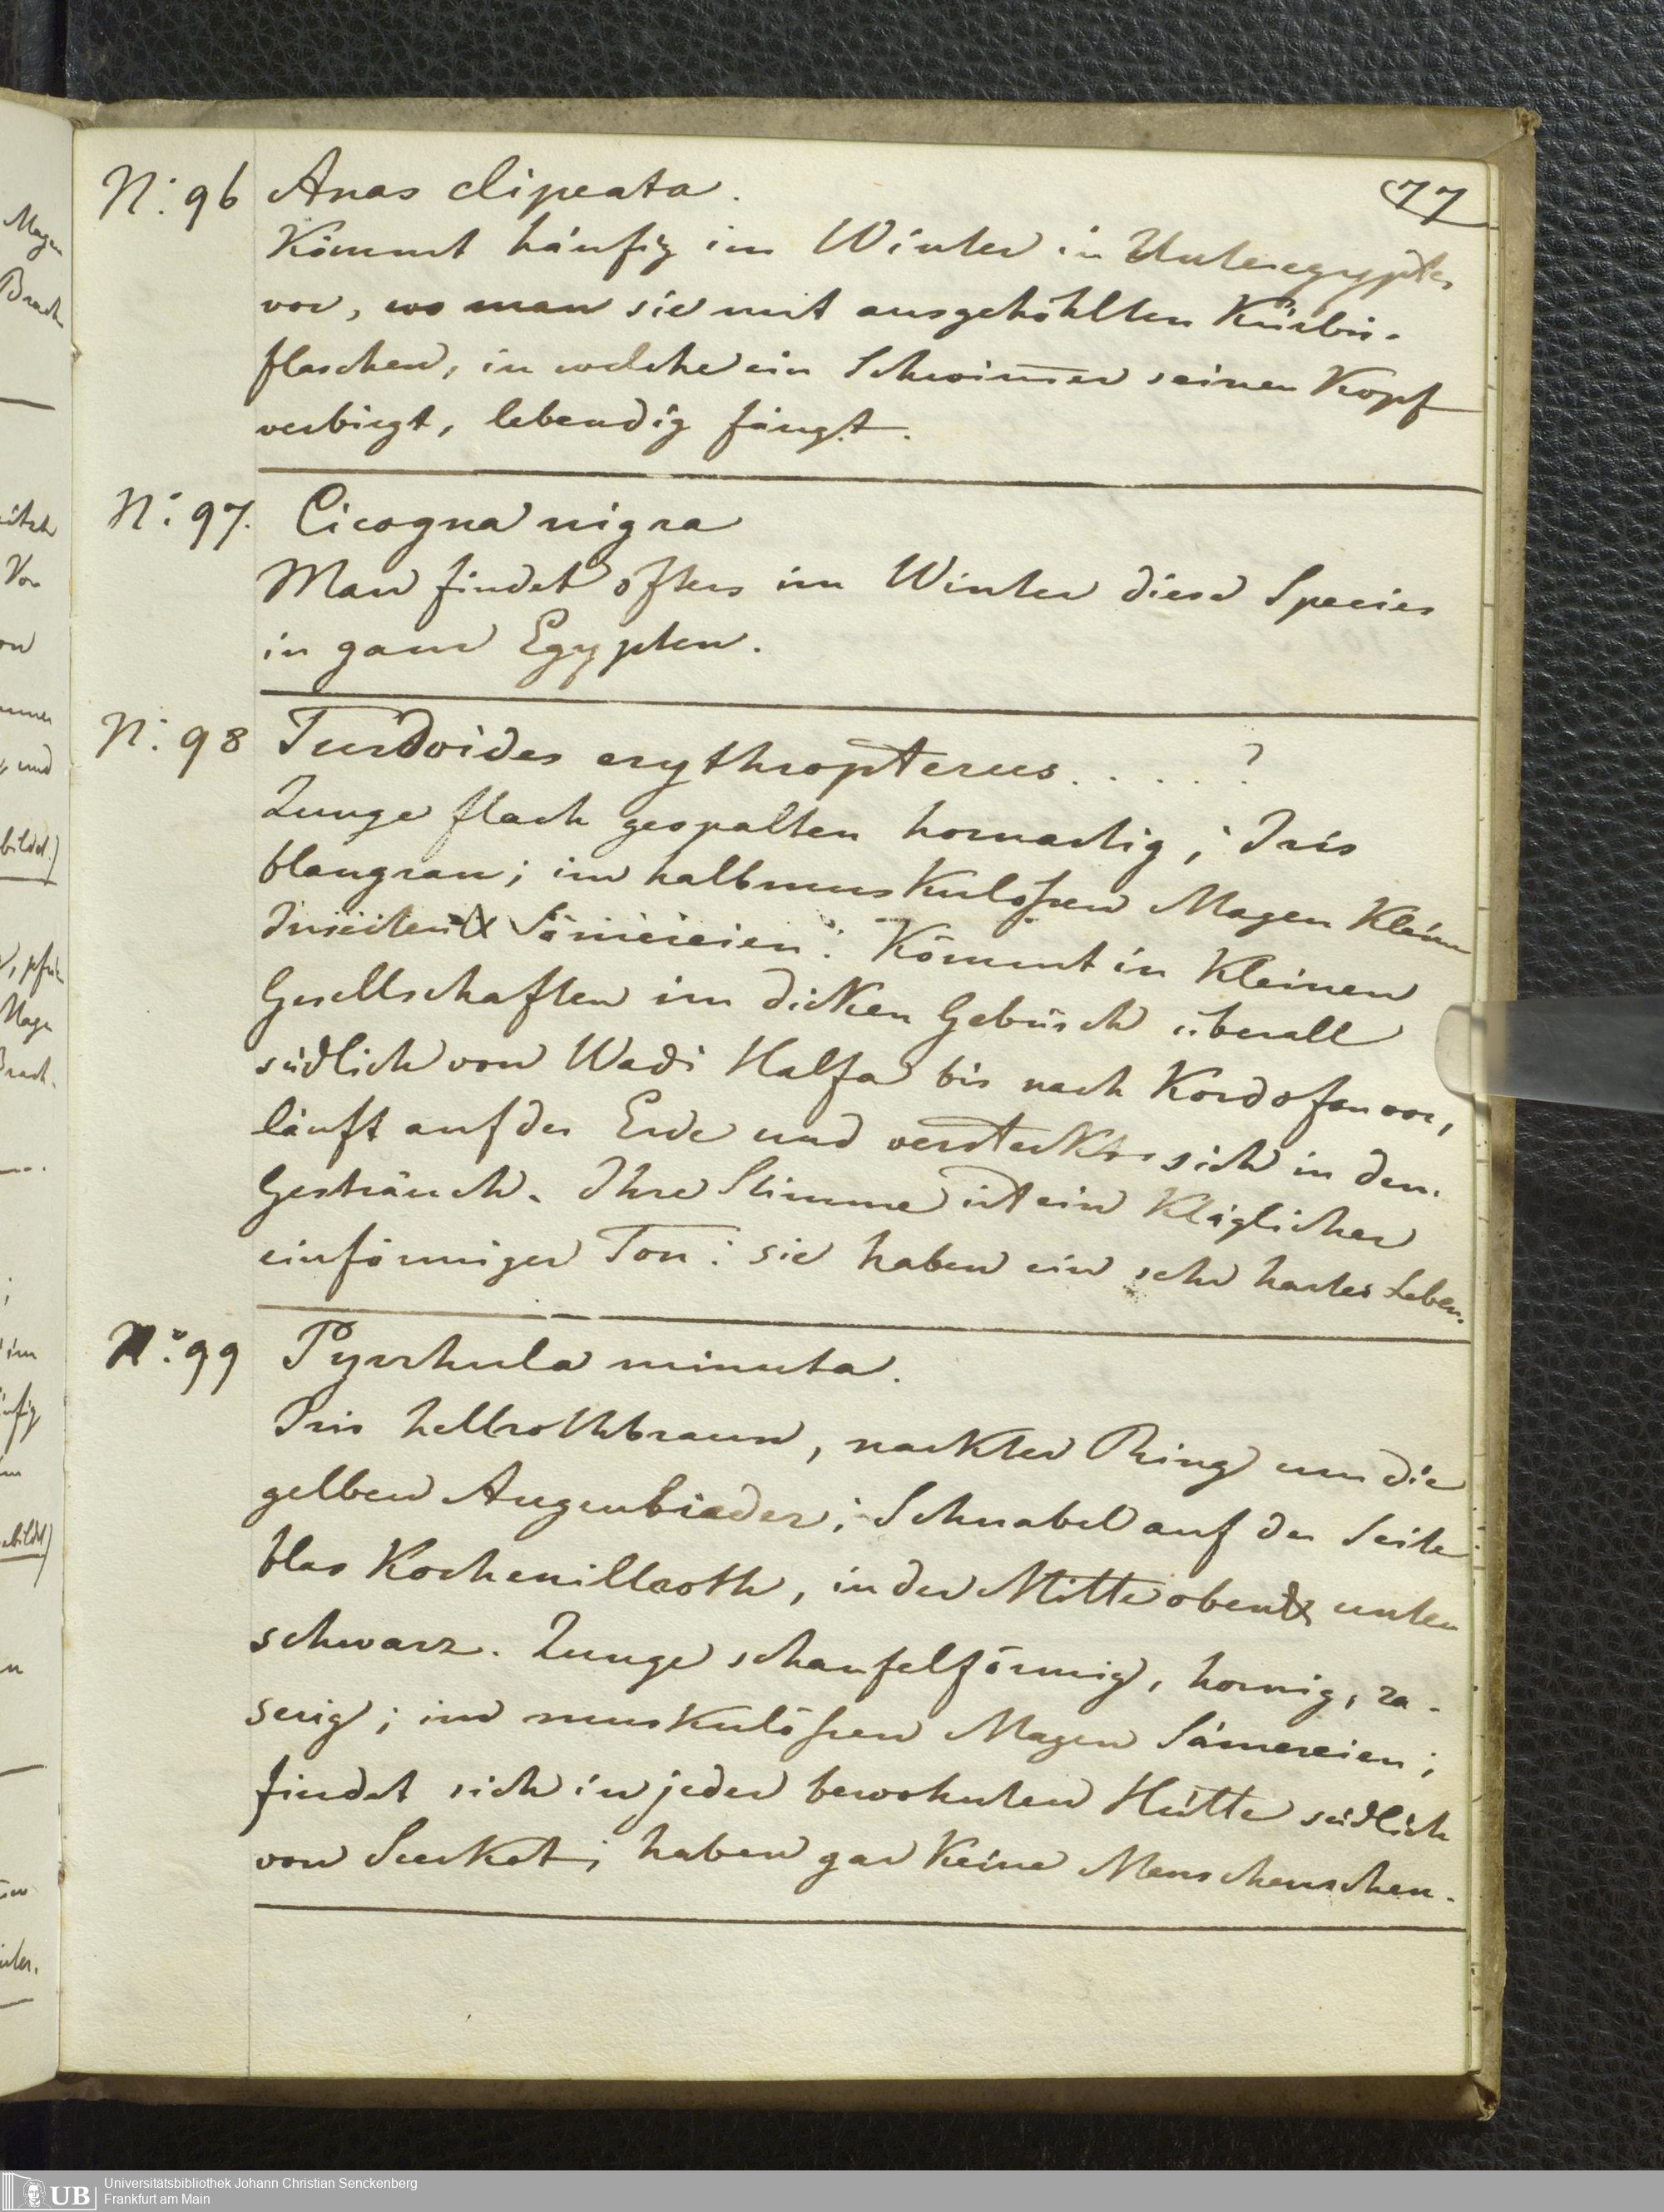 77
N: 96 Anas clipeata.
Kömmt häufig im Winter in Unteregypten
vor, wo man sie mit ausgehöhlten Kürbis-
flaschen, in welche ein Schwim̅er seinen Kopf
verbirgt, lebendig fängt.
N: 97. Cicogna nigra
Man findet öfters im Winter diese Species
in ganz Egypten.
N: 98 Turdoides erythropterus. . . . ?
Zunge flach gespalten hornartig; Iris
blaugrau; im halbmuskulößen Magen kleine
Insecten & Sämereien: Kömmt in kleinen
Gesellschaften im dicken Gebüsch überall
südlich von Wadi Halfa bis nach Kordofan vor,
läuft auf der Erde und versteckt sich in den
Gesträuch. Ihre Stimme ist ein kläglicher
einförmiger Ton: sie haben ein sehr hartes Leben.
N: 99 Pyrrhula minuta.
Iris hellrothbraun, nackter Ring um die
gelben Augenlieder; Schnabel auf der Seite
blas Kochenillroth, in der Mitte oben & unten
schwarz. Zunge schaufelförmig, hornig, za-
serig; im muskulößen Magen Sämereien;
findet sich in jeder bewohnten Hütte südlich
von Suckot; haben gar keine Menschenscheu.
Magen
und
bildet.)
Mage
im
bildet)
Universitätsbibliothek Johann Christian Senckenberg
Frankfurt am Main
UB